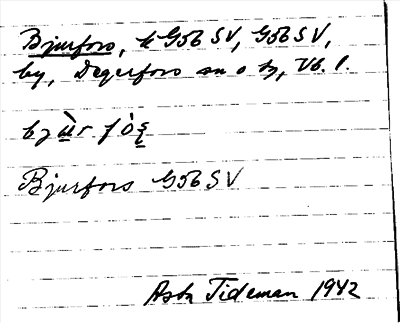 Bjurfors, k G56 SV, G56 SV,
by, Degerfors sn o tg, Vb. l.
bjùr fòs̨
Bjurfors G56 SV
Asta Tideman 1942